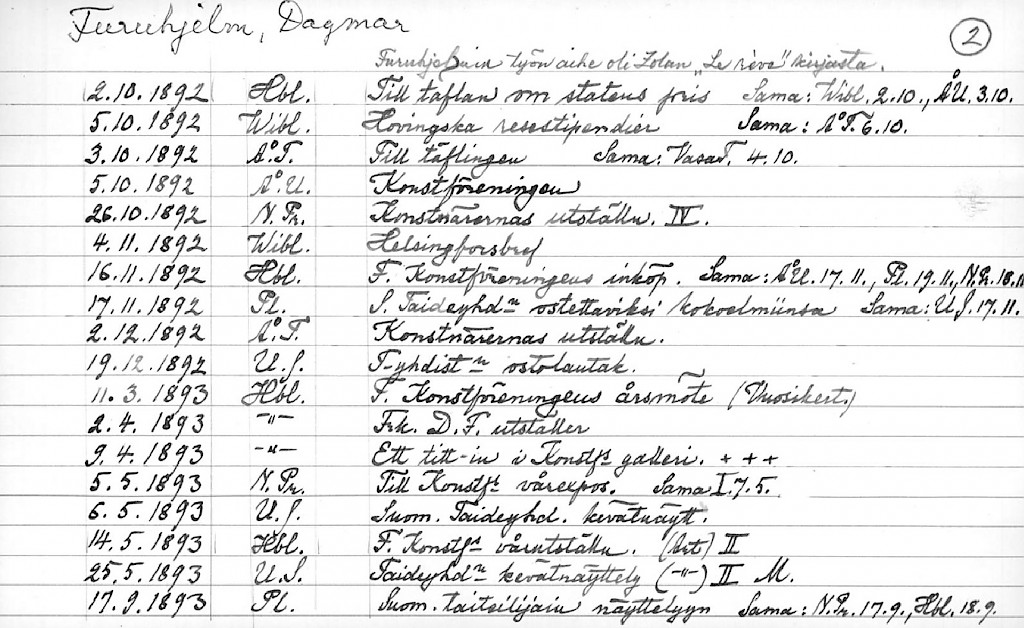 Furuhjelm, Dagmar
2
Furuhjelmin työn aihe oli Zolan „Le rève" kirjasta.
2.10.1892 Hbl. Till täflan om statens pris Sama: Wibl. 2.10., Å.U. 3.10.
5.10.1892 Wibl. Hovingska resestipendier Sama: Å.T. 6.10.
3.10.1892 Å.T. Till täflingen Sama: VasaT. 4.10.
5.10.1892 Å.U. Konstföreningen
26.10.1892 N.Pr. Konstnärernas utställn. IV.
4.11.1892 Wibl. Helsingforsbref
16.11.1892 Hbl. F. Konstföreningens inköp. Sama: Å.U. 17.11., Pl. 19.11., N.Pr. 18.11
17.11.1892 Pl. S. Taideyhd:n ostettaviksi kokoelmiinsa Sama: U.S. 17.11.
2.12.1892 Å.T. Konstnärernas utställn.
19.12.1892 U.S. T-yhdist:n ostolautak.
11.3.1893 Hbl. F. Konstföreningens årsmöte (Vuosikert.)
2.4.1893 -"- Frk. D.F. utställer
9.4.1893 -"- Ett titt-in i Konstf:s galleri. + + +
5.5.1893 N.Pr. Till Konstf:s vårexpos. Sama I. 7.5.
6.5.1893 U.S. Suom. Taideyhd. kevätnäytt.
14.5.1893 Hbl. F. Konstf:s vårutställn. (Art) II
25.5.1893 U.S. Taideyhd:n kevätnäyttely (-"-) II M.
17.9.1893 Pl. Suom. taiteilijain näyttelyyn Sama: N.Pr. 17.9., Hbl. 18.9.